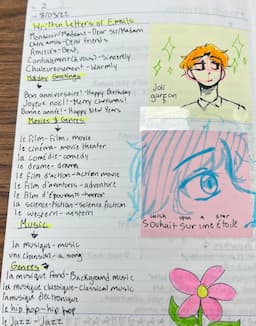 - 2
- 8/03/22
Written Letters or Emails
Monsieur/Madame - Dear Sir/Madam
Chers amis - Dear friends
Amitiés - Best,
Cordialement (à vous) - Sincerely
Chaleureusement - Warmly
Holiday Greetings
Bon anniversaire! - Happy Birthday
Joyeux noël! - Merry Christmas!
Bonne année! - Happy New Years
Movies & Genres
le film - film, movie
le cinéma - movie theater
la comédie - comedy
le drame - drama
le film d'action - action movie
le film d'aventure - adventure
le film d'épouvante - horror
la science-fiction - science fiction
le western - western
Music
la musique - music
une chanson - a song
Genres
la musique fond - Background music
la musique classique - Classical music
la musique électronique
le hip hop - hip hop
le Jazz - Jazz
Joli
garçon
wish upon a star
Souhait sur une étoile